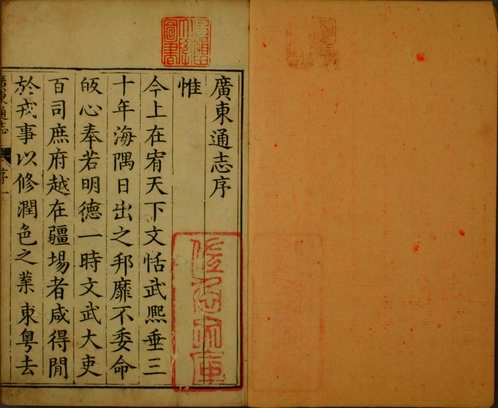 廣東通志序
惟
今上在宥天下文恬武熙垂三
十年海隅日出之邦靡不委命
皈心奉若明德一時文武大吏
百司庶府越在疆場者咸得閒
於戎事以修潤色之業東粤去
廣東通志
序
一